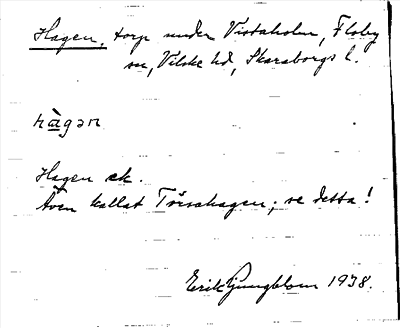 Hagen, torp under Vistaholm, Floby
sn, Vilske hd, Skaraborgs l.
hàgən
Hagen ek.
Även kallat Törsahagen; se detta!
Erik Ljungblom 1938.